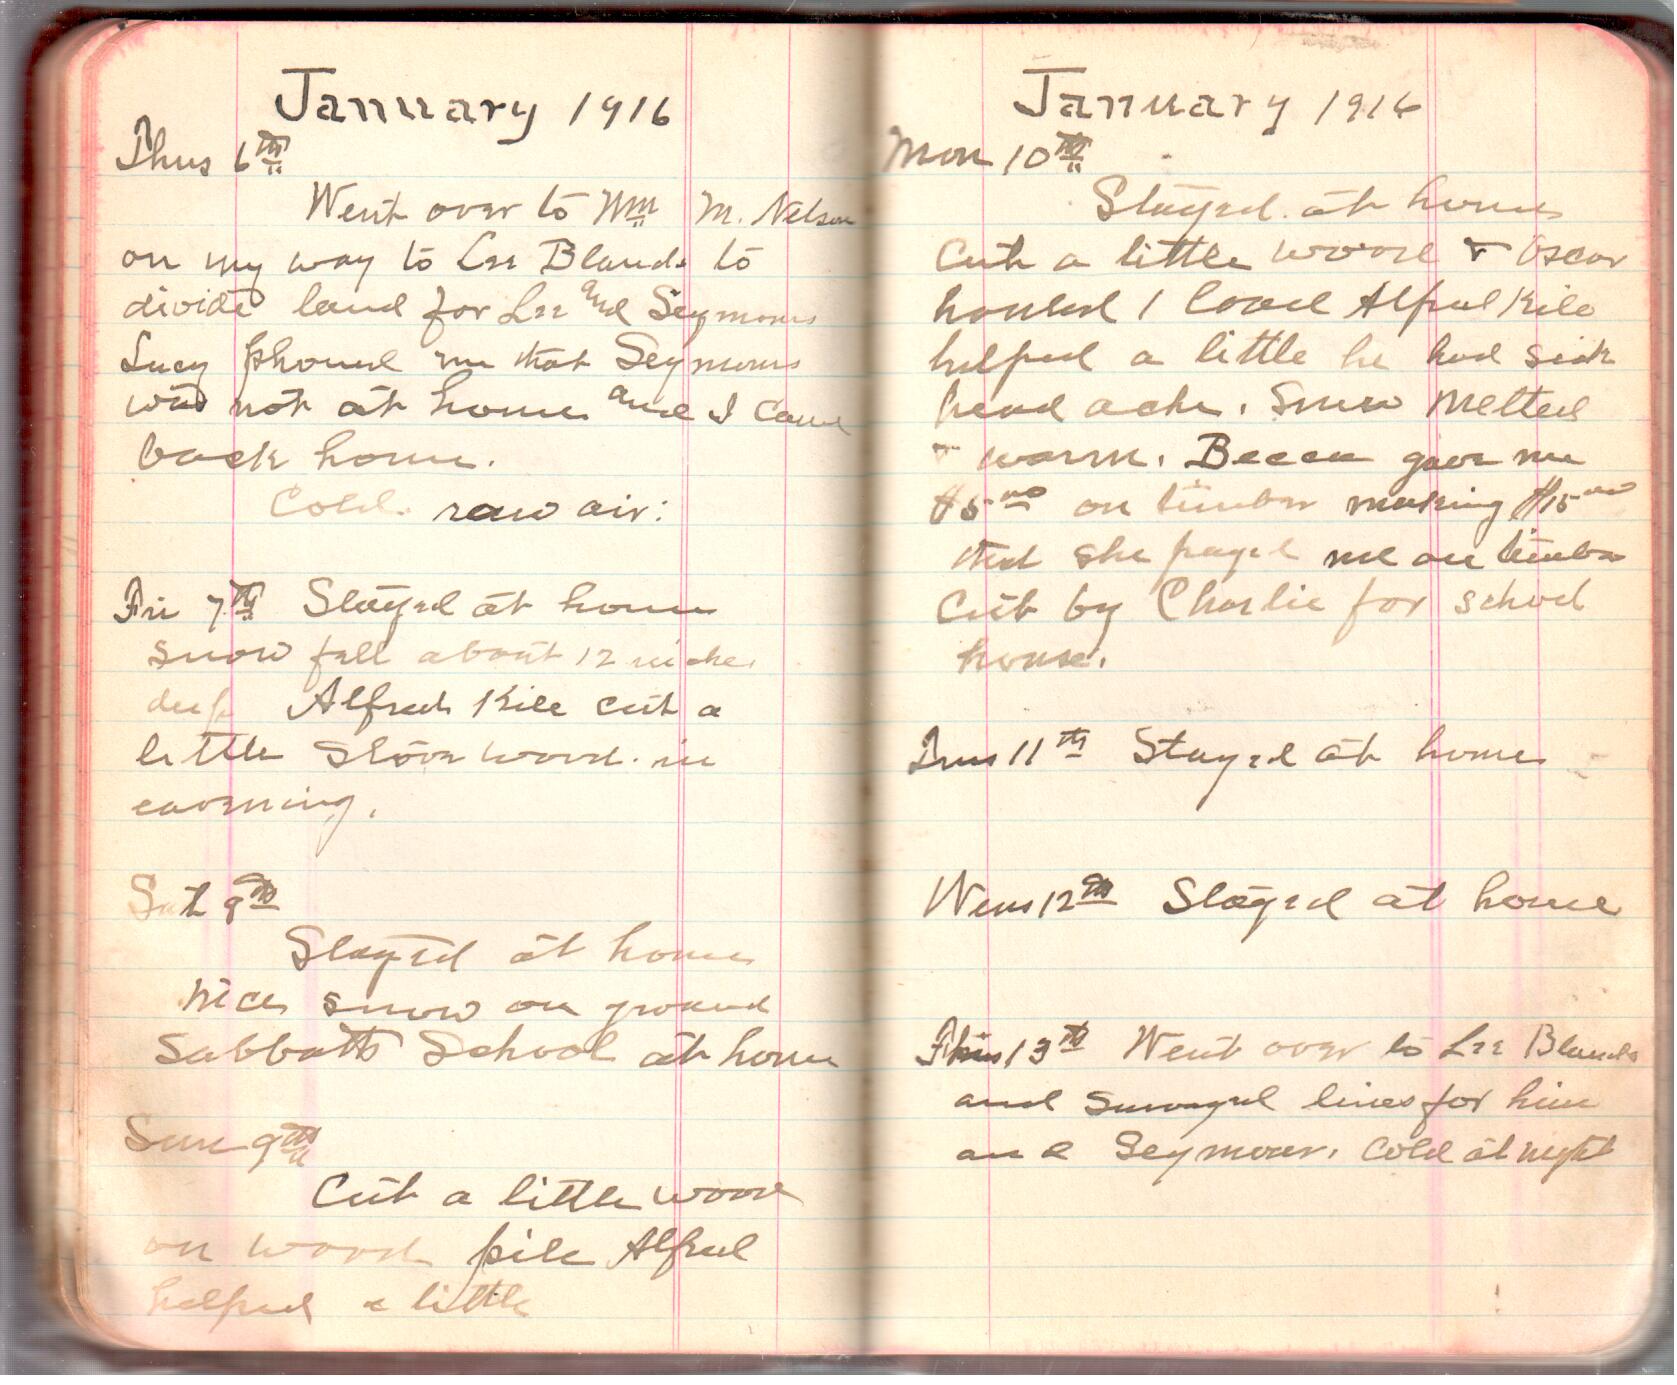 January 1916
Thus 6th
Went over to Wm M. Nelson
on my way to Lee Blands to
divide land for Lee and Seymours
Lucy phoned me that Seymours
was not at home and I came
back home.
Cold raw air:
Fri 7th Stayed at home
snow fell about 12 inches
deep Alfred Kile cut a
little stove wood in
eavening.
Sat 9th
Stayed at home
Nice snow on ground
Sabbath School at home
Sun 9th
Cut a little wood
on wood pile Alfred
helped a little
January 1916
Mon 10th
Stayed at home
Cut a little wood & Oscar
hauled 1 load Alfred Kile
helped a little he had sick
head ache. Snow Melted
& warm. Becca gave me
$5.00 on timber making $15.00
that she payed me on timber
cut by Charlie for school
house.
Tus 11th Stayed at home
Wens 12th Stayed at home
Thus 13th Went over to Lee Blands
and Surveyed lines for him
and Seymour. Cold at night